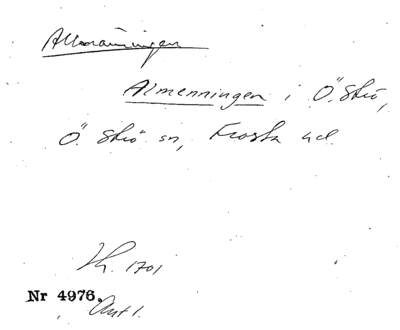 Allmänningen
Almenningen i Ö. Strö,
Ö. Strö sn, Frosta hd.
Lk. 1701
Nr 4976.
Ant 1.